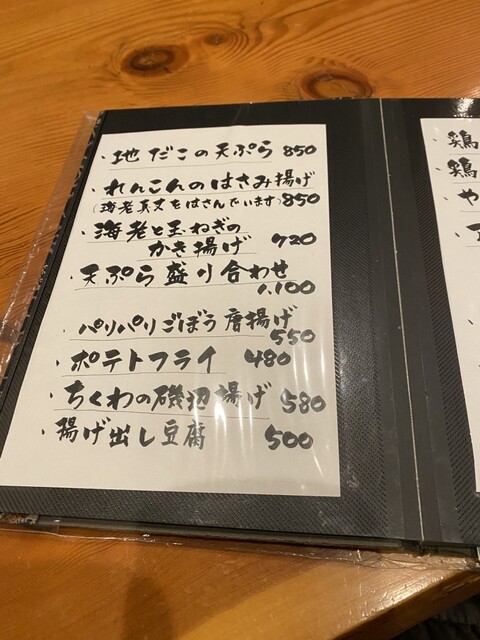 ・地だこの天ぷら 850
・れんこんのはさみ揚げ
(海老真丈をはさんでいます) 850
・海老と玉ねぎの
かき揚げ 720
・天ぷら盛り合わせ
1,100
・パリパリごぼう唐揚げ
550
・ポテトフライ 480
・ちくわの磯辺揚げ 580
・揚げ出し豆腐 500
・鶏
・鶏
・や